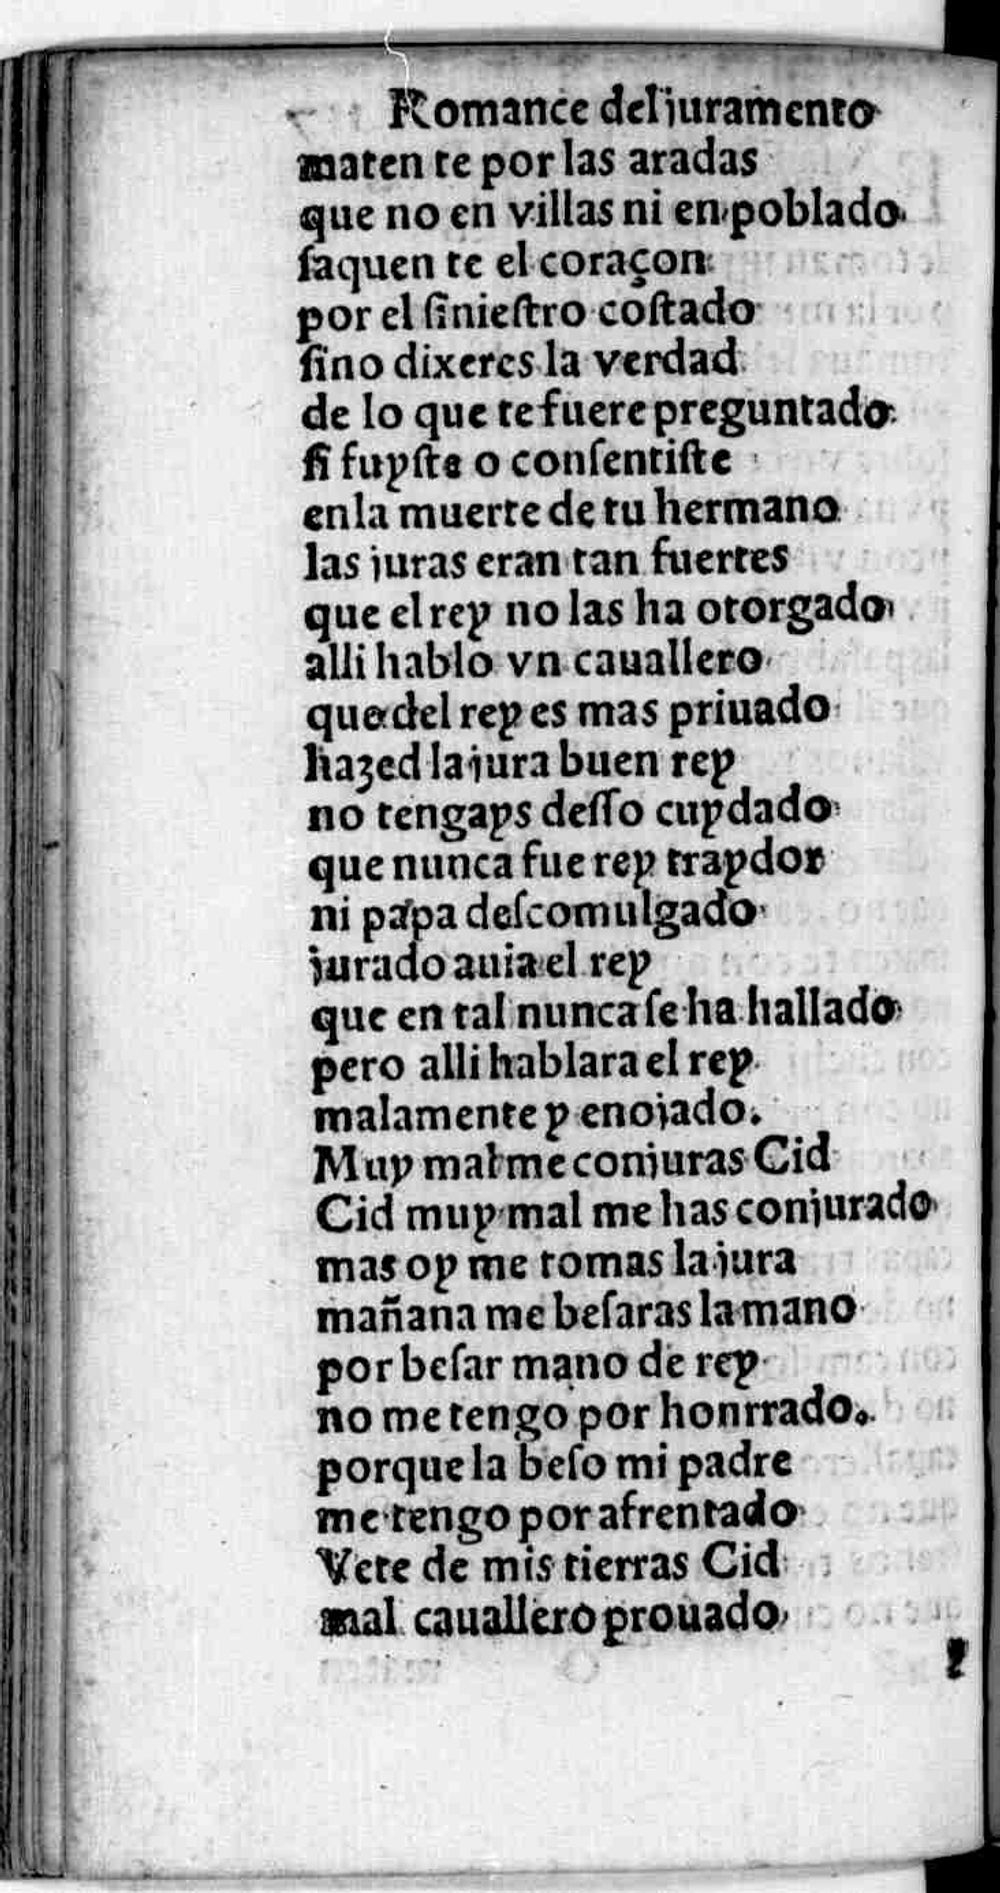 Romance del juramento
maten te por las aradas
que no en villas ni en poblado
ſaquen te el coraçon
por el ſinieſtro coſtado
ſino dixeres la verdad
de lo que te fuere preguntado
ſi fuyſte o conſentiſte
enla muerte de tu hermano
las juras eran tan fuertes
que el rey no las ha otorgado
alli hablo vn cauallero
que del rey es mas priuado
hazed la jura buen rey
no tengays deſſo cuydado
que nunca fue rey traydor
ni papa deſcomulgado
jurado auia el rey
que en tal nunca ſe ha hallado
pero alli hablara el rey
malamente y enojado.
Muy mal me conjuras Cid
Cid muy mal me has conjurado
mas oy me tomas la jura
mañana me beſaras la mano
por beſar mano de rey
no me tengo por honrrado.
porque la beſo mi padre
me tengo por afrentado
Vete de mis tierras Cid
mal cauallero prouado
y